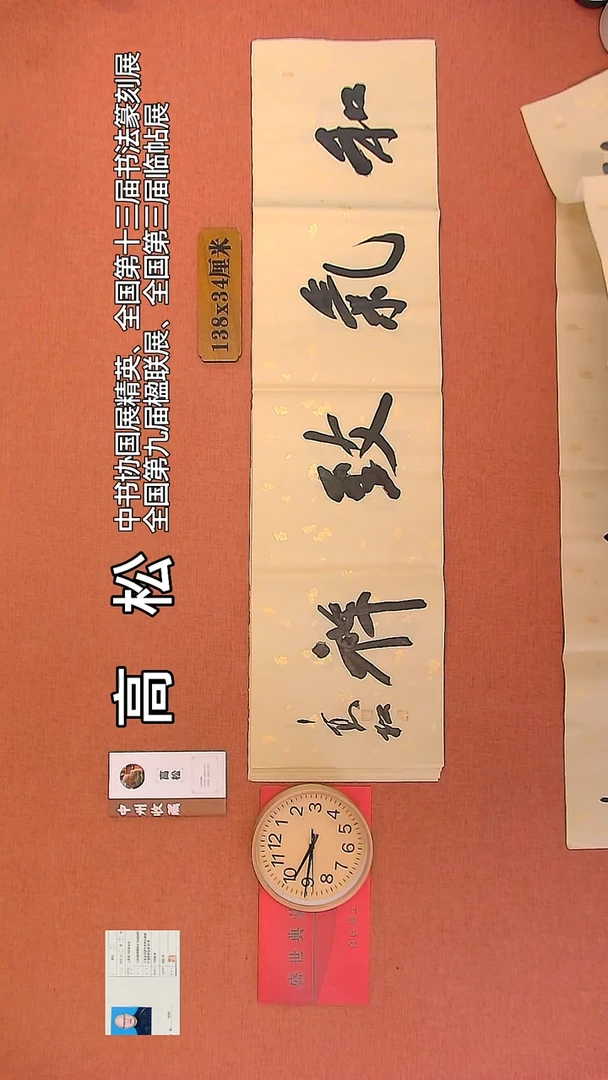 高 松
中书协国展精英、全国第十三届书法篆刻展
全国第九届楹联展、全国第三届临帖展
138x34厘米
和氣致祥
高松
高松
中州收藏
盛世典
12
1
2
3
4
5
6
7
8
9
10
11